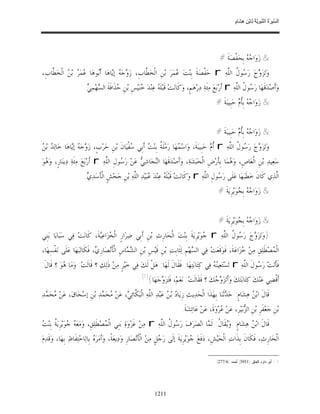 السِّيرَةُ النَّبَوِيَّةُ لِابْنِ هِشَامٍ
& زَوَاجُهُ بِحَفْصَةَ #
وَتَزَوَّجَ رَسُولُ اللَّهِ r حَفْصَةَ بِنْتَ عُمَرَ بْنِ الْخَطَّابِ، زَوَّجَهُ إِيَّاهَا أَبُوهَا عُمَرُ بْنُ الْخَطَّابِ،
وَأَصْدَقَهَا رَسُولُ اللَّهِ r أَرْبَعَ مِئَةِ دِرْهَمٍ، وَكَانَتْ قَبْلَهُ عِنْدَ خُنَيْسِ بْنِ حُذَافَةَ السَّهْمِيِّ
& زَوَاجُهُ بِأُمِّ حَبِيبَةَ #
& زَوَاجُهُ بِأُمِّ حَبِيبَةَ #
وَتَزَوَّجَ رَسُولُ اللَّهِ r أُمَّ حَبِيبَةَ، وَاسْمُهَا رَمْلَةُ بِنْتُ أَبِي سُفْيَانَ بْنِ حَرْبٍ، زَوَّجَهُ إِيَّاهَا خَالِدُ بْنُ
سَعِيدِ بْنِ الْعَاصِ، وَهُمَا بِأَرْضِ الْحَبَشَةِ، وَأَصْدَقَهَا النَّجَاشِيُّ عَنْ رَسُولِ اللَّهِ r أَرْبَعَ مِئَةِ دِينَارٍ، وَهُوَ
الَّذِي كَانَ خَطَبَهَا عَلَى رَسُولِ اللَّهِ r وَكَانَتْ قَبْلَهُ عِنْدَ عُبَيْدِ اللَّهِ بْنِ جَحْشٍ الْأَسَدِيِّ
& زَوَاجُهُ بِجُوَيْرِيَةَ #
& زَوَاجُهُ بِجُوَيْرِيَةَ #
(وَتَزَوَّجَ رَسُولُ اللَّهِ r جُوَيْرِيَةَ بِنْتَ الْحَارِثِ بْنِ أَبِي ضِرَارٍ الْخُزَاعِيَّةَ، كَانَتْ فِي سَبَايَا بَنِي
الْمُصْطَلِقِ مِنْ خُزَاعَةَ، فَوَقَعَتْ فِي السَّهْمِ لِثَابِتِ بْنِ قَيْسِ بْنِ الشَّمَّاسِ الْأَنْصَارِيِّ، فَكَاتَبَهَا عَلَى نَفْسِهَا،
فَأَتَتْ رَسُولَ اللَّهِ r تَسْتَعِينُهُ فِي كِتَابَتِهَا. فَقَالَ لَهَا: هَلْ لَكِ فِي خَيْرٍ مِنْ ذَلِكَ ؟ قَالَتْ: وَمَا هُوَ ؟ قَالَ:
أَقْضِي عَنْكِ كِتَابَتَكِ وَأَتَزَوَّجُكِ ؟ فَقَالَتْ: نَعَمْ، فَتَزَوَّجَهَا)
قَالَ ابْنُ هِشَامٍ: حَدَّثَنَا بِهَذَا الْحَدِيثِ زِيَادُ بْنُ عَبْدِ اللَّهِ الْبَكَّائِيُّ، عَنْ مُحَمَّدِ بْنِ إِسْحَاقَ، عَنْ مُحَمَّدِ
بْنِ جَعْفَرِ بْنِ الزُّبَيْرِ، عَنْ عُرْوَةَ، عَنْ عَائِشَةَ
قَالَ ابْنُ هِشَامٍ: وَيُقَالُ: لَمَّا انْصَرَفَ رَسُولُ اللَّهِ r مِنْ غَزْوَةِ بَنِي الْمُصْطَلِقِ، وَمَعَهُ جُوَيْرِيَةُ بِنْتُ
الْحَارِثِ، فَكَانَ بِذَاتِ الْجَيْشِ، دَفَعَ جُوَيْرِيَةَ إِلَى رَجُلٍ مِنْ الْأَنْصَارِ وَدِيعَةً، وَأَمَرَهُ بِالِاحْتِفَاظِ بِهَا، وَقَدِمَ
أبو داود العتق (3931) أحمد (277/6)
1211